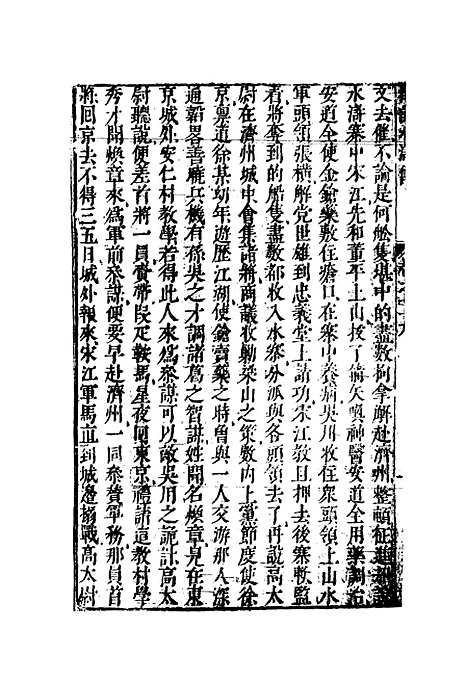 文去催不論是何船隻堪中的盡數拘拿解赴濟州整頓征進却說
水滸寨中宋江先和董平上山拔了箭矢喚神醫安道全用藥調治
安道全使金鎗藥敷住瘡口在寨中養病吳用收住衆頭領上山水
軍頭領張橫解党世雄到忠義堂上請功宋江教且押去後寨軟監
着將奪到的船隻盡數都收入水寨分派與各頭領去了再說高太
尉在濟州城中會集諸將商議收勦梁山之策數內上黨節度使徐
京稟道徐某幼年遊歷江湖使鎗賣藥之時曾與一人交游那人深
通韜畧善曉兵機有孫吳之才調諸葛之智謀姓聞名煥章見在東
京城外安仁村教學若得此人來爲叅謀可以敵吳用之詭計高太
尉聽說便差首將一員賫帶段疋鞍馬星夜囘東京禮請這教村學
秀才聞煥章來爲軍前叅謀便要早赴濟州一同叅贊軍務那員首
將回京去不得三五日城外報來宋江軍馬直到城邊搦戰高太尉